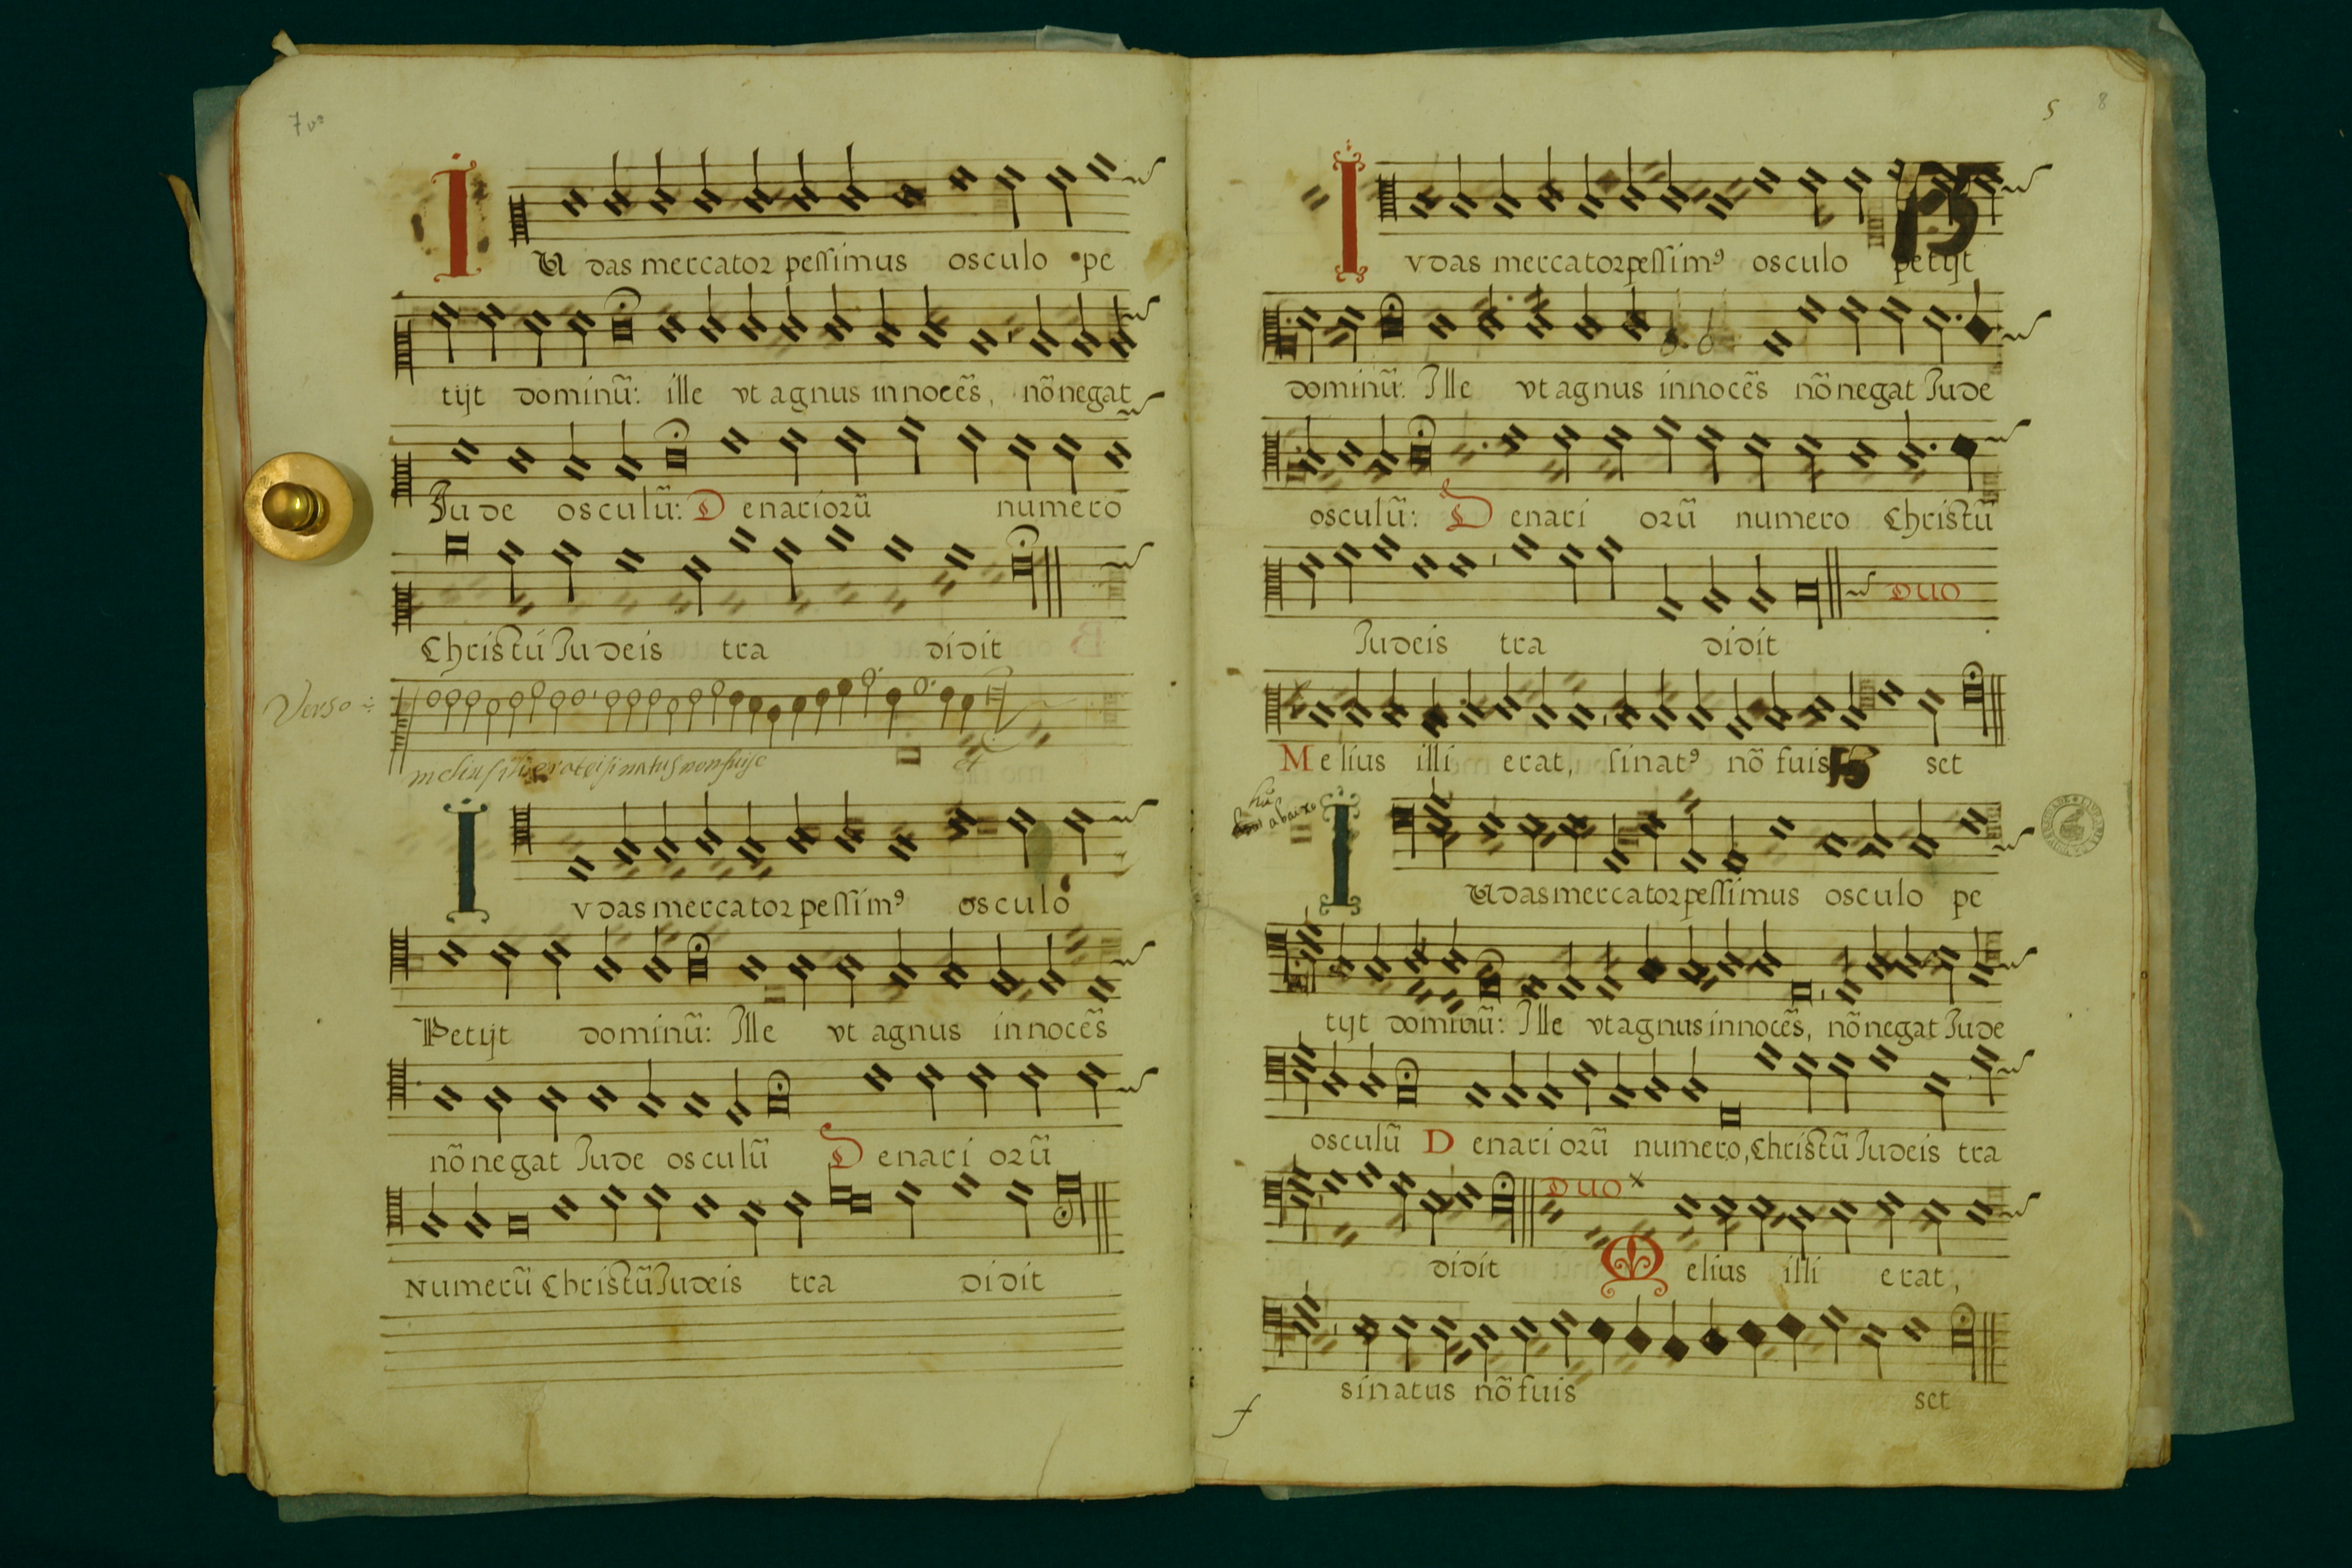 7 vº
IU das mercator pessimus osculo pe
tijt dominũ: ille vt agnus innocẽs, nõ negat
Jude osculũ: Denariorũ numero
Christũ Judeis tra didit
Verso
melius illi erat si natus non fuisse
Ivdas mercator pessimꝰ osculo
Petijt dominũ: Ille vt agnus innocẽs
nõ negat Jude osculũ Denari orũ
Numerũ Christũ Judeis tra didit
5 8
Ivdas mercator pessimꝰ osculo petijt
dominũ: Ille vt agnus innocẽs nõ negat Jude
osculũ: Denari orũ numero Christũ
Judeis tra didit
DUO
Melius illi erat, si natꝰ nõ fuis set
abaixo
IUdas mercator pessimus osculo pe
tijt dominũ: Ille vt agnus innocẽs, nõ negat Jude
osculũ Denari orũ numero, Christũ Judeis tra
DUO
didit Melius illi erat,
si natus nõ fuis set